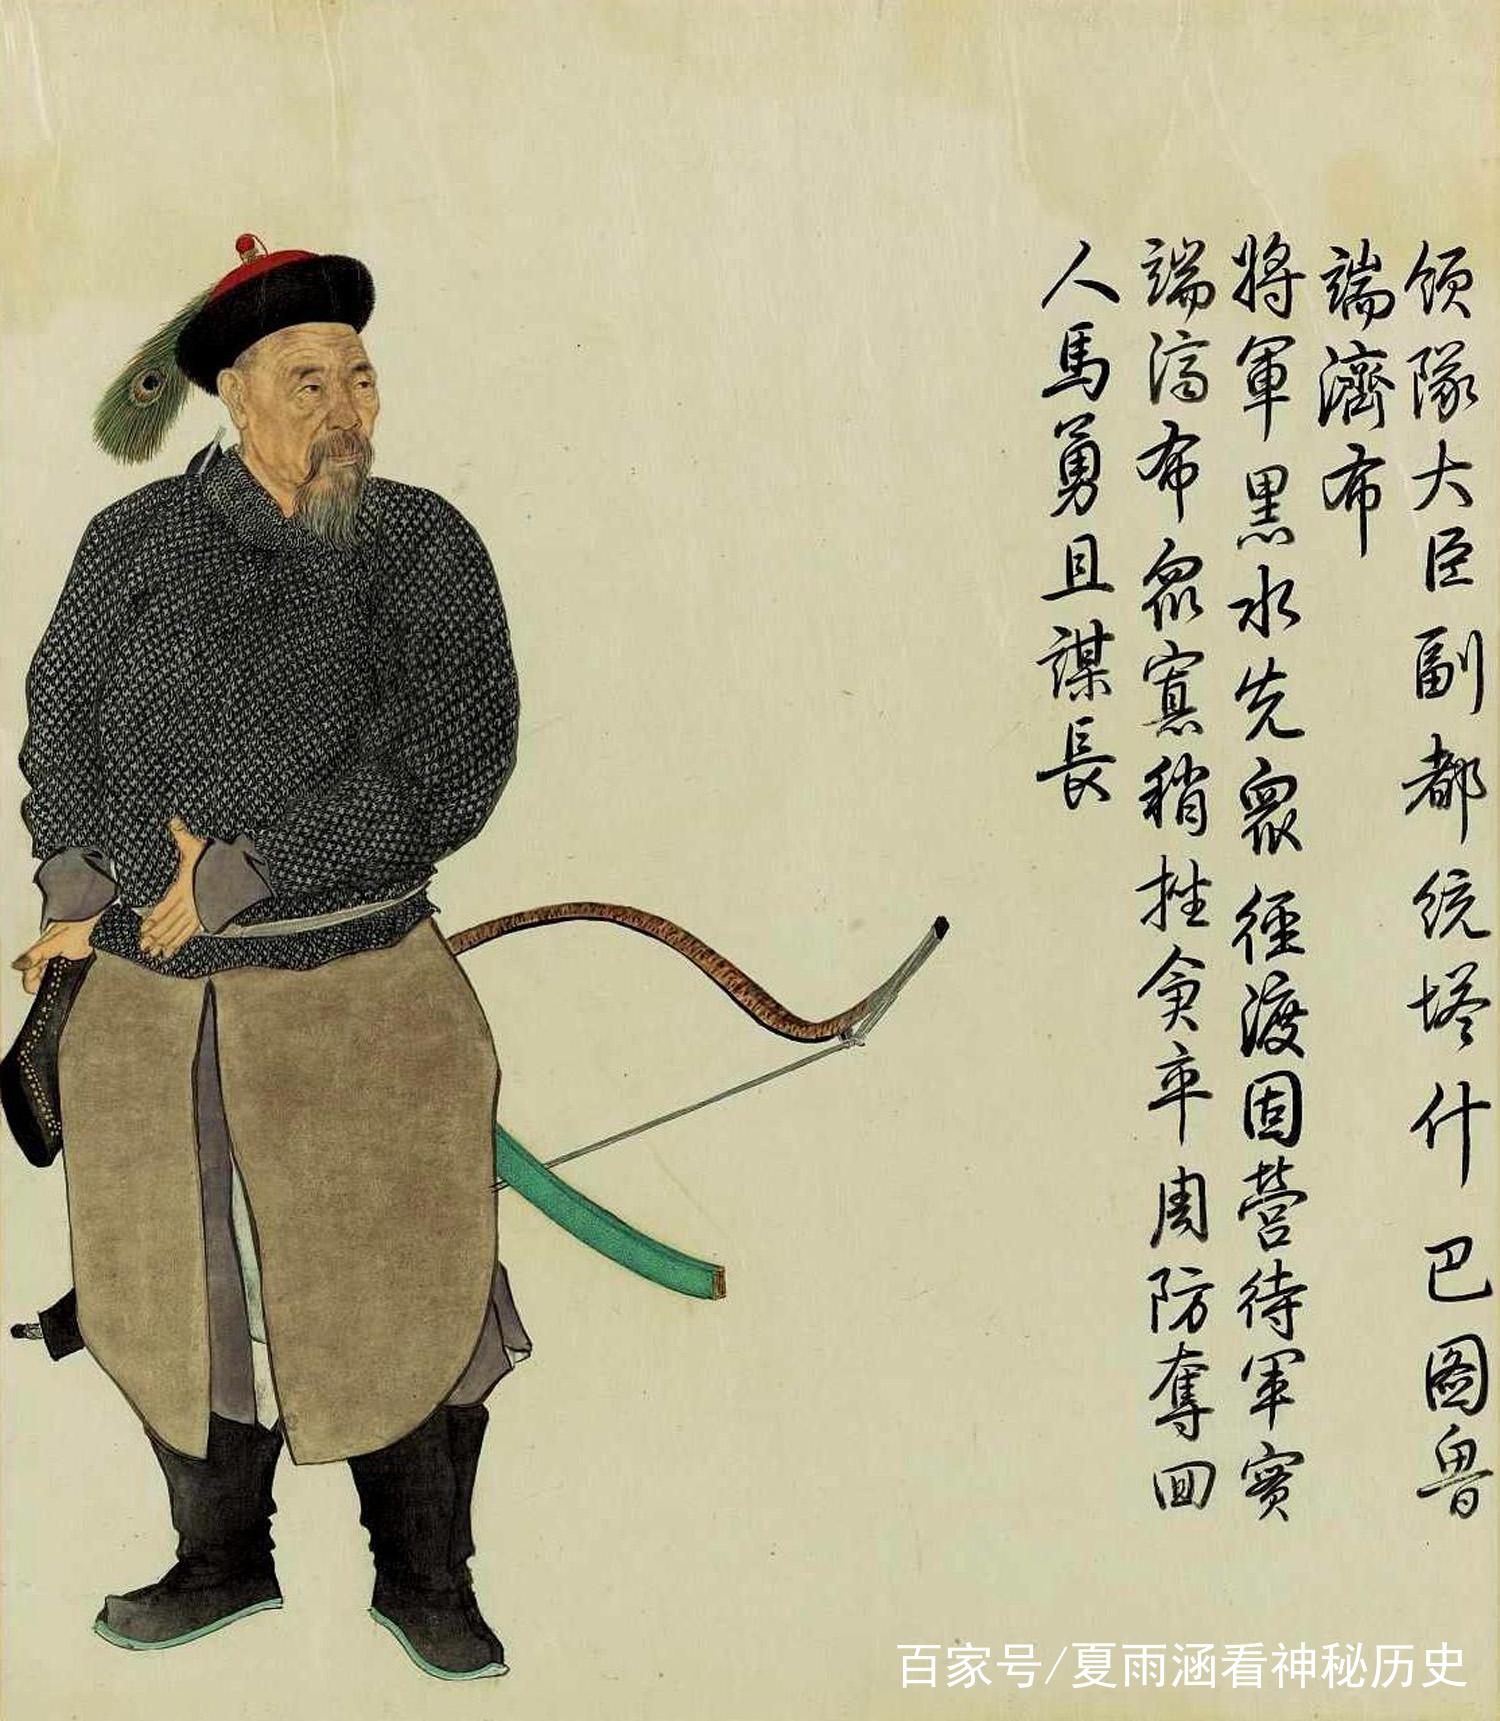 領隊大臣副都統塔什巴圖魯
端濟布
將軍黑水先衆徑渡固營待軍實
端濟布衆寡稍挫卒周防奪回
人馬勇且謀長
百家号/夏雨涵看神秘历史